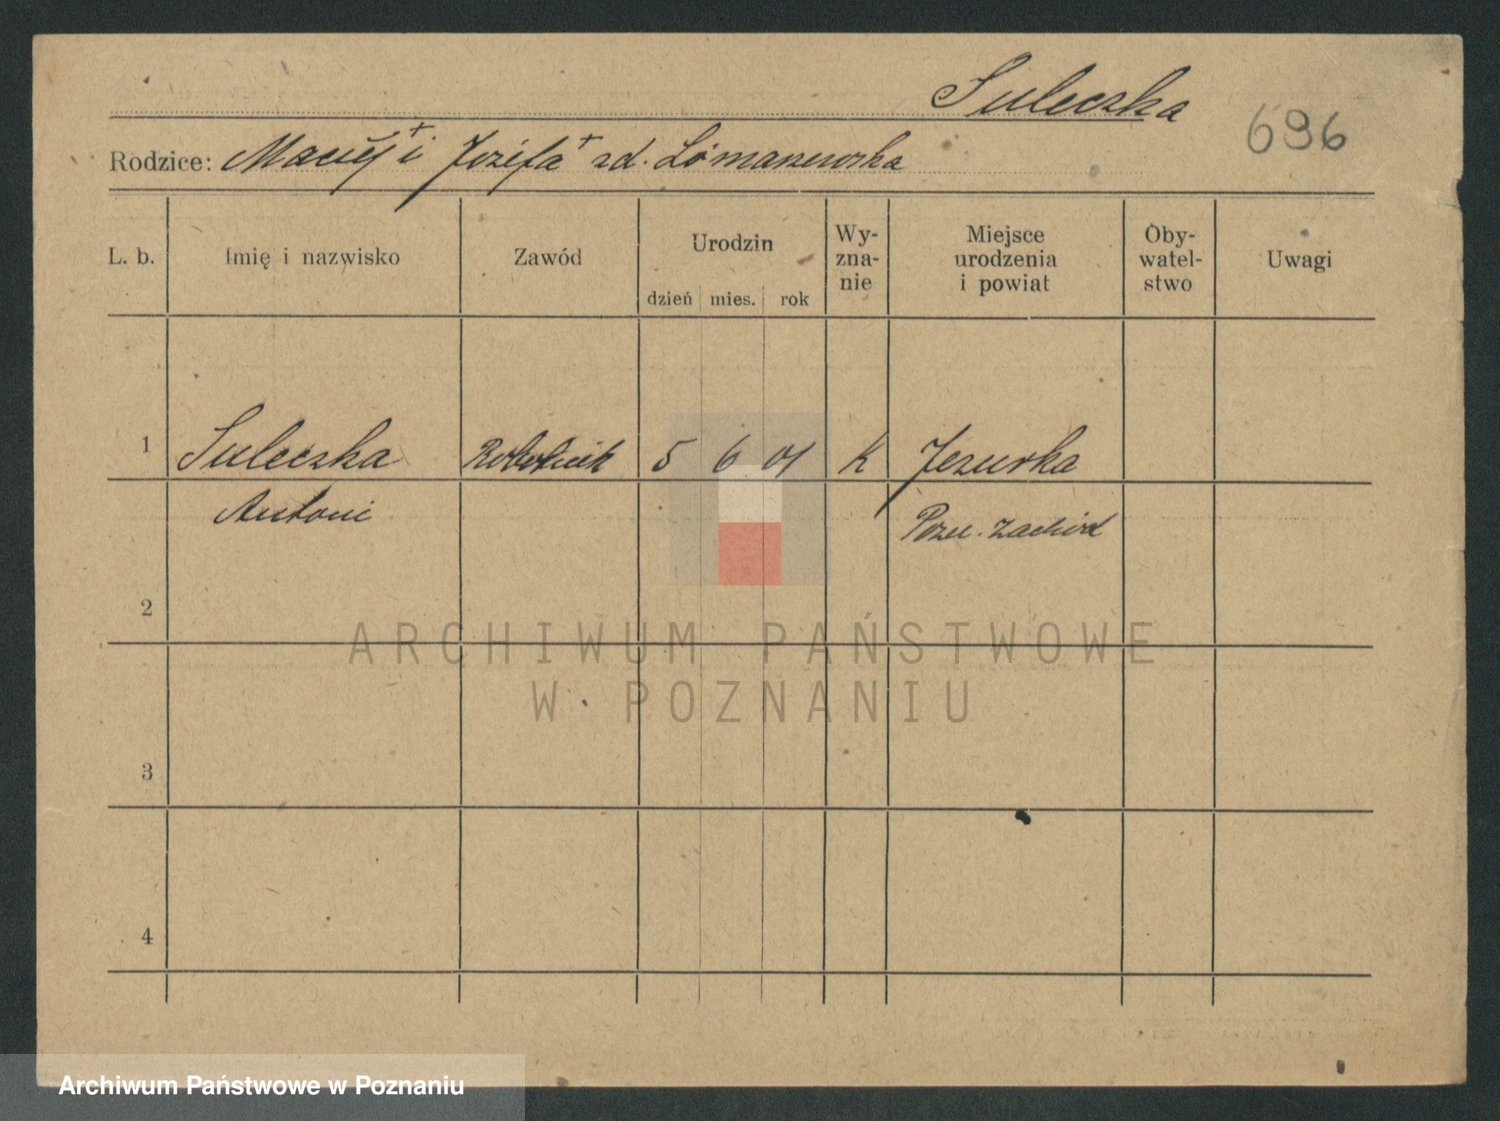 Suleczka
696
Rodzice: Maciej + i Józefa + zd.
L. b. Imię i nazwisko Zawód Urodzin dzień mies. rok Wy-zna-nie Miejsce urodzenia i powiat Oby-watel-stwo Uwagi
1 Suleczka Robotnik 5 6 01 K Jezurka
Antoni Pozn. zachód
2
ARCHIWUM PAŃSTWOWE
W POZNANIU
3
4
Archiwum Państwowe w Poznaniu